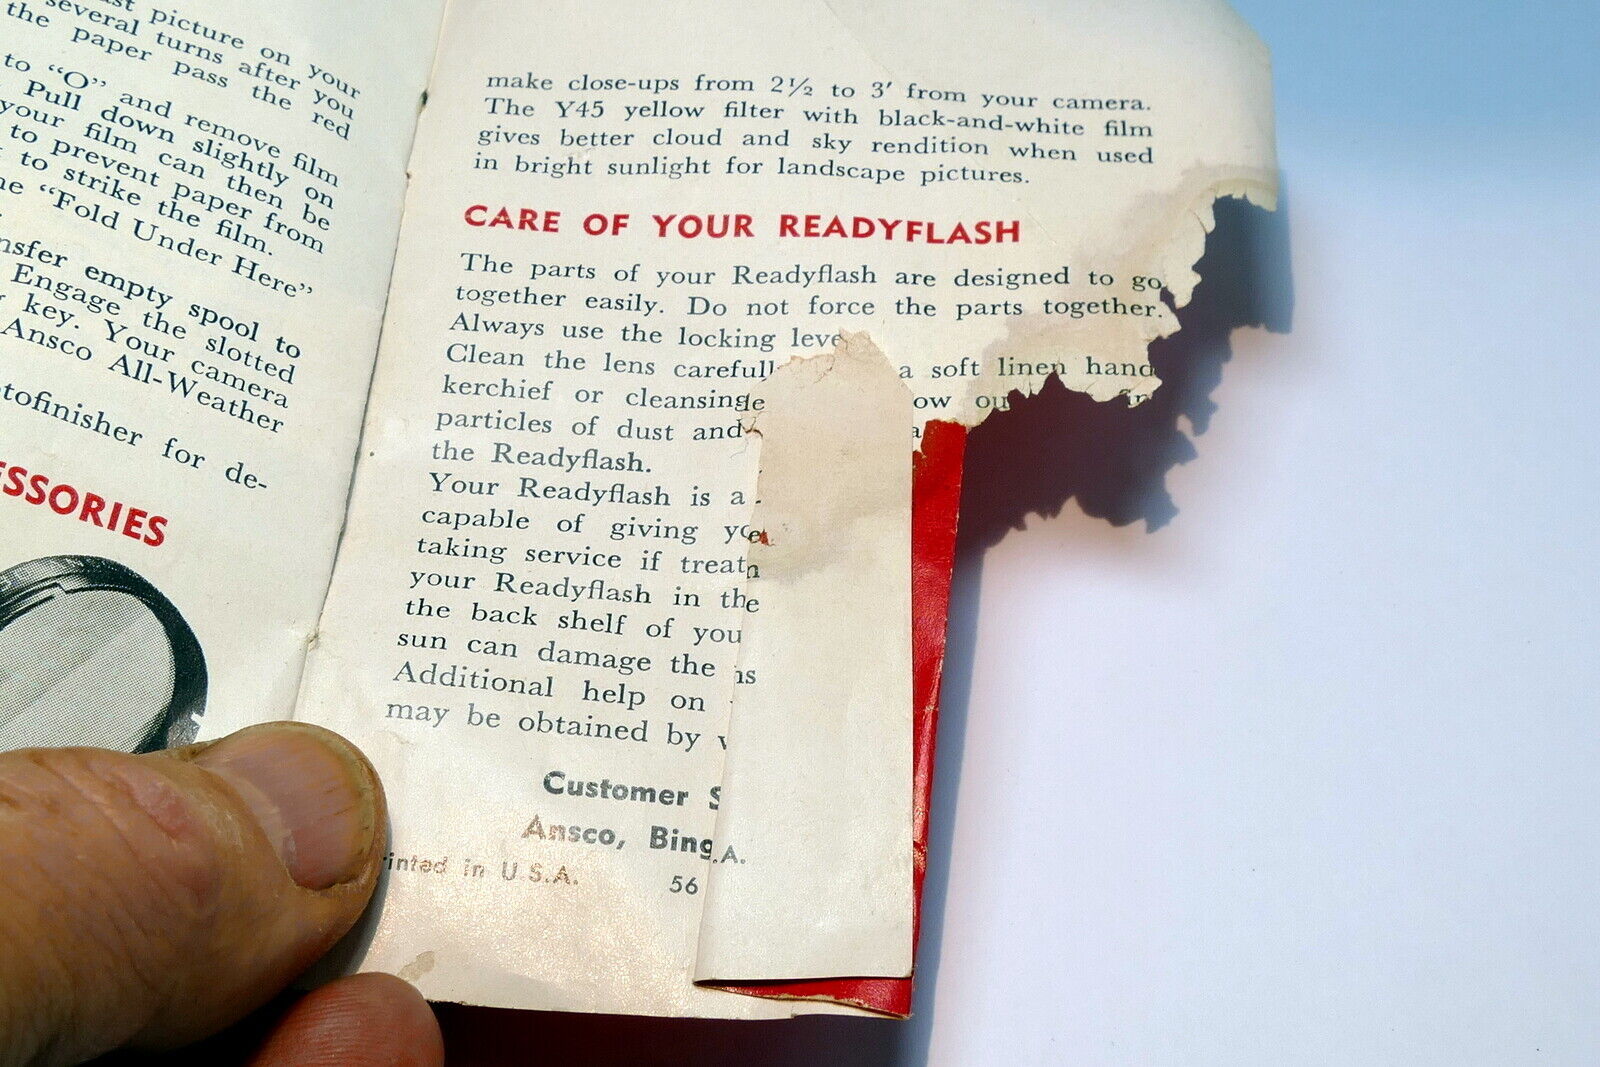 st picture on your
several turns after you
the paper pass the red
to “O” and remove film
Pull down slightly on
your film can then be
to prevent paper from
to strike the film.
“Fold Under Here”
nsfer empty spool to
Engage the slotted
key. Your camera
Ansco All-Weather
otofinisher for de-
SSORIES
make close-ups from 2½ to 3′ from your camera.
The Y45 yellow filter with black-and-white film
gives better cloud and sky rendition when used
in bright sunlight for landscape pictures.
CARE OF YOUR READYFLASH
The parts of your Readyflash are designed to go
together easily. Do not force the parts together.
Always use the locking leve
Clean the lens carefull a soft linen hand
kerchief or cleansing ow ou
particles of dust and a
the Readyflash.
Your Readyflash is a
capable of giving yo
taking service if treat
your Readyflash in the
the back shelf of you
sun can damage the
Additional help on
may be obtained by
Customer S
Ansco, Bing
.A.
rinted in U.S.A. 56